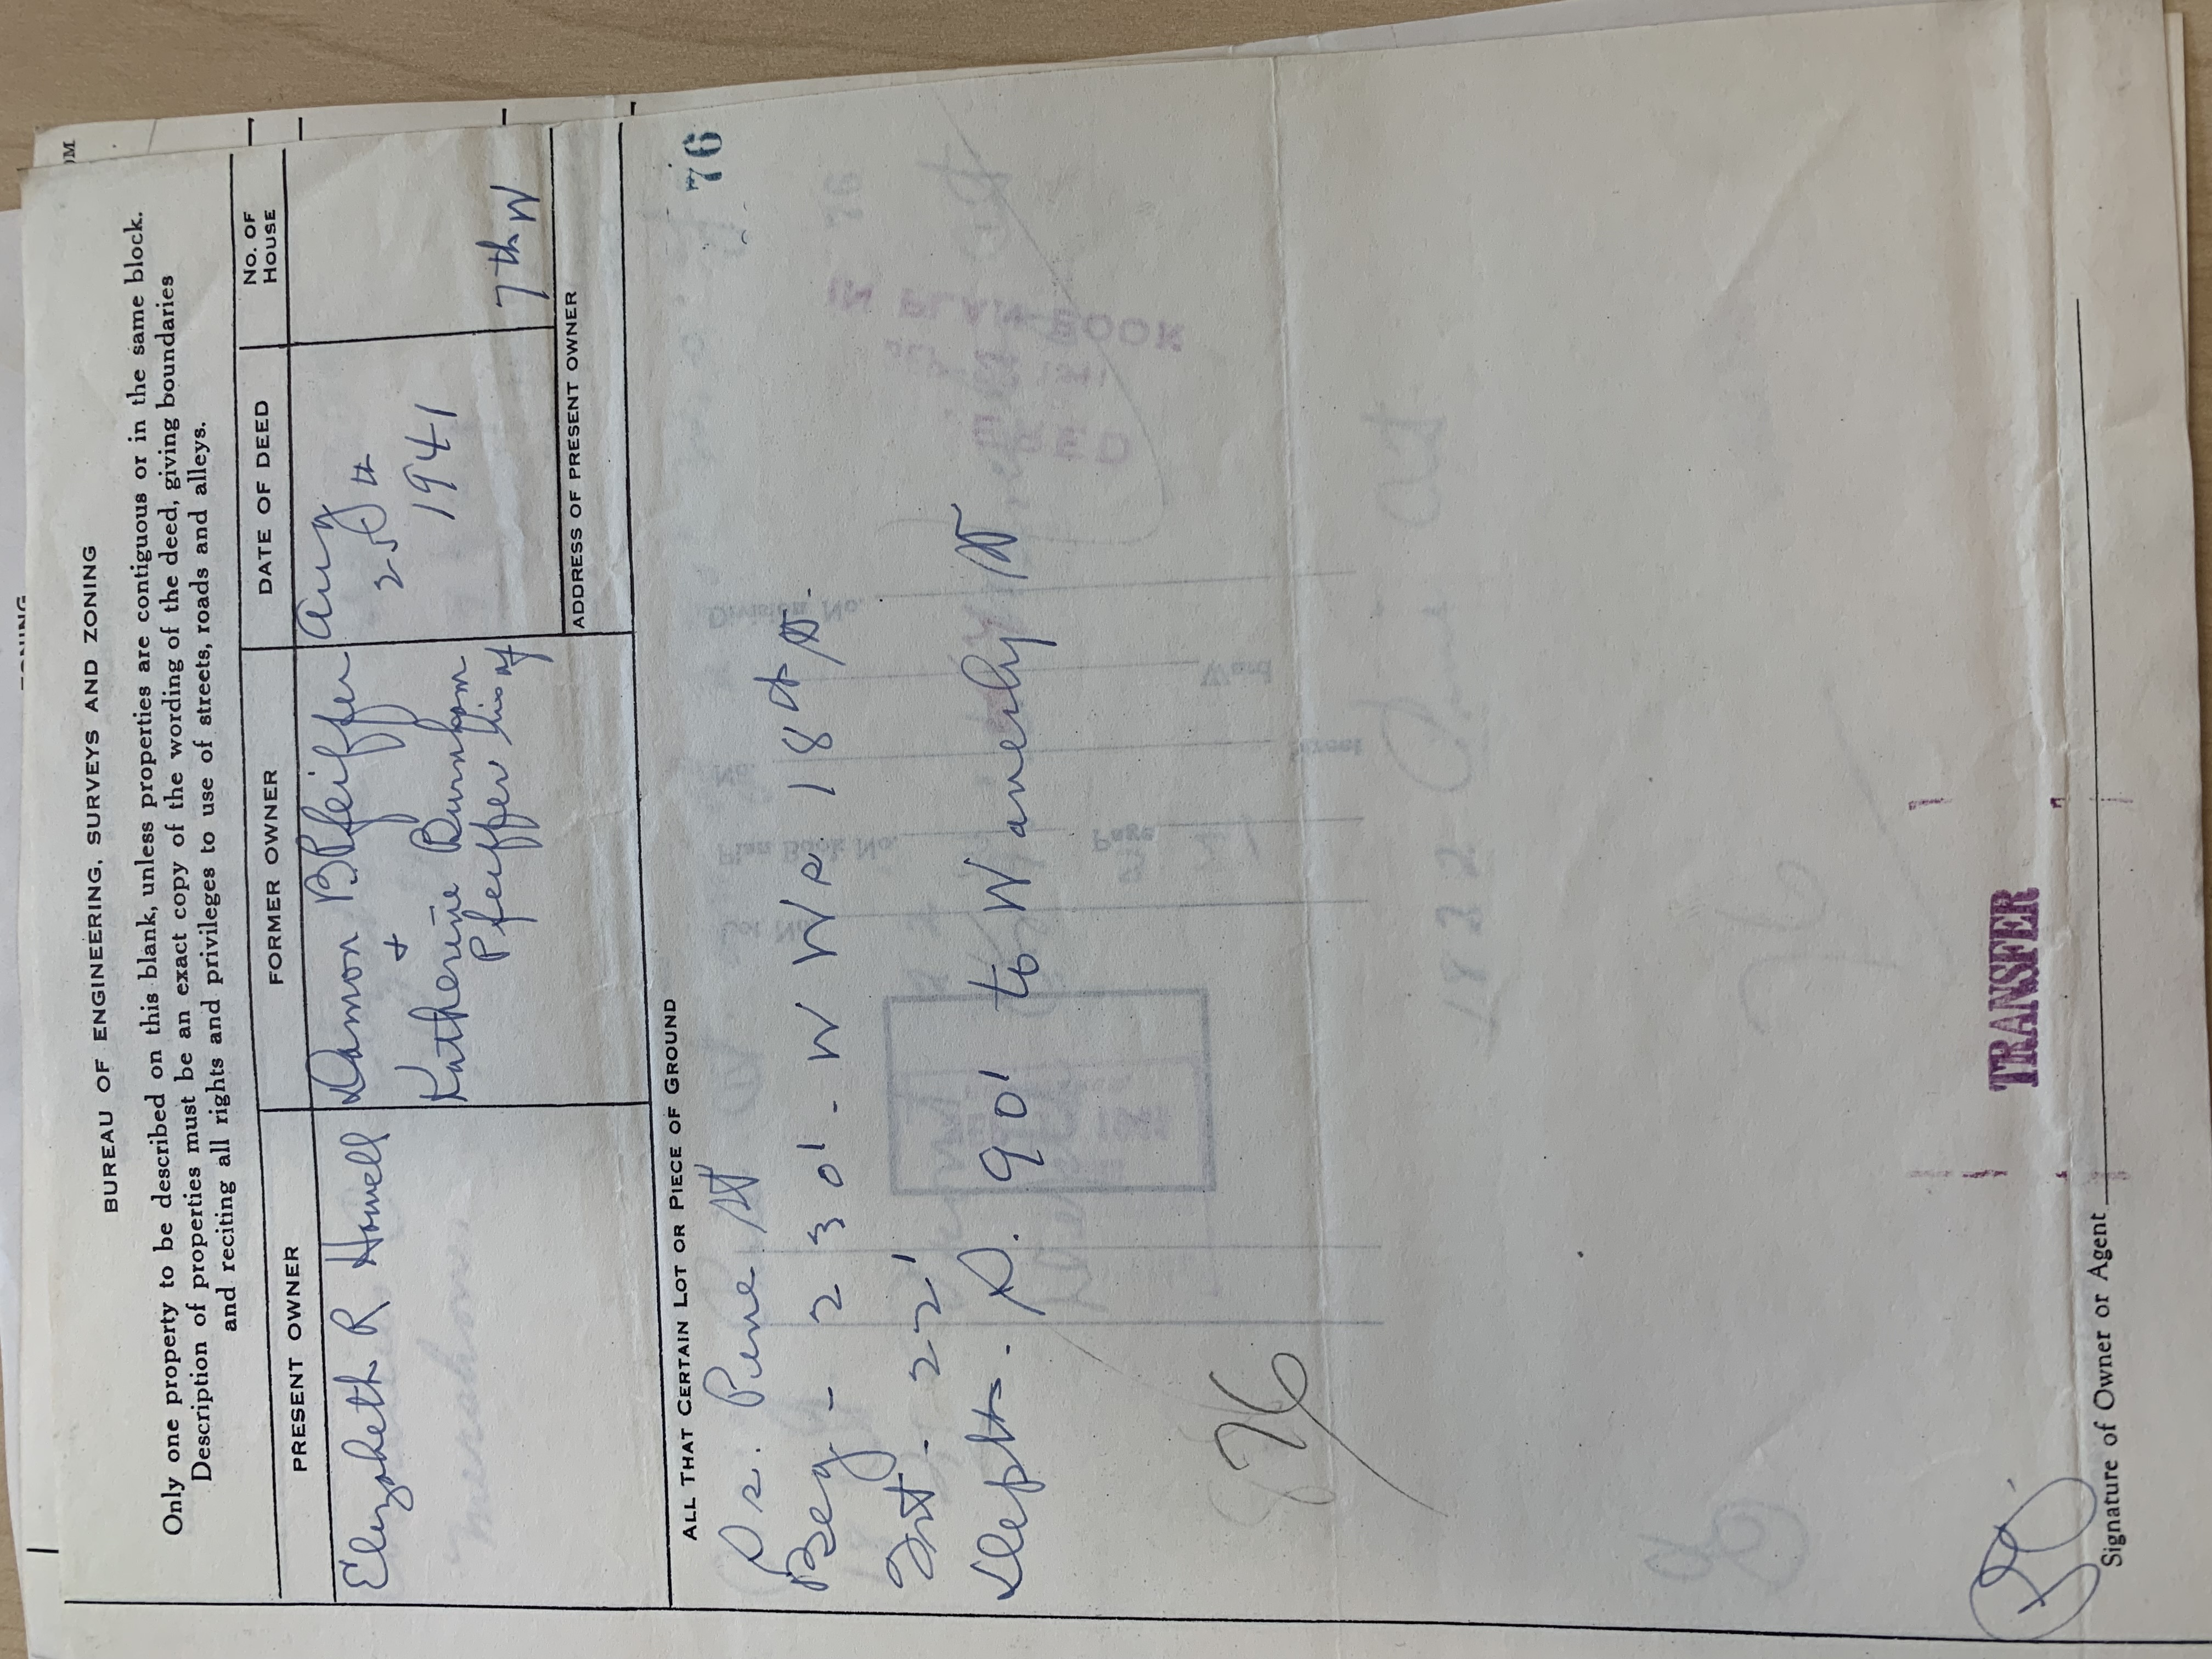 BUREAU OF ENGINEERING, SURVEYS AND ZONING
Only one property to be described on this blank, unless properties are contiguous or in the same block.
Description of properties must be an exact copy of the wording of the deed, giving boundaries
and reciting all rights and privileges to use of streets, roads and alleys.
PRESENT OWNER
FORMER OWNER
DATE OF DEED
No. OF HOUSE
Elizabeth R Howell
Damon B Pfeiffer
+
Katherine Burnham
Pfeiffer his wf
Aug
25th
1941
7th W
ADDRESS OF PRESENT OWNER
ALL THAT CERTAIN LOT OR PIECE OF GROUND
76
S. s. Pine St
Beg - 230' - W W s. 18th St.
Frt - 22'
Depth - S. 90' to Waverly St
76
TRANSFER
Signature of Owner or Agent